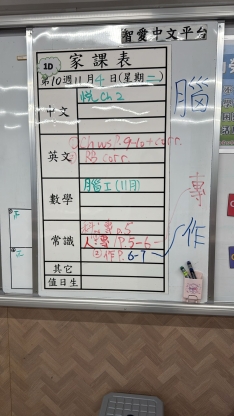 智愛中文平台
1D 家課表
第10週11月4日(星期二)
中文 悅ch 2
英文 ① ch ws P.9-10+corr.
② corr.
數學 腦工(11月)
常識 P.5
P.5-6
③作P.6-7
其它
值日生
腦
專
作